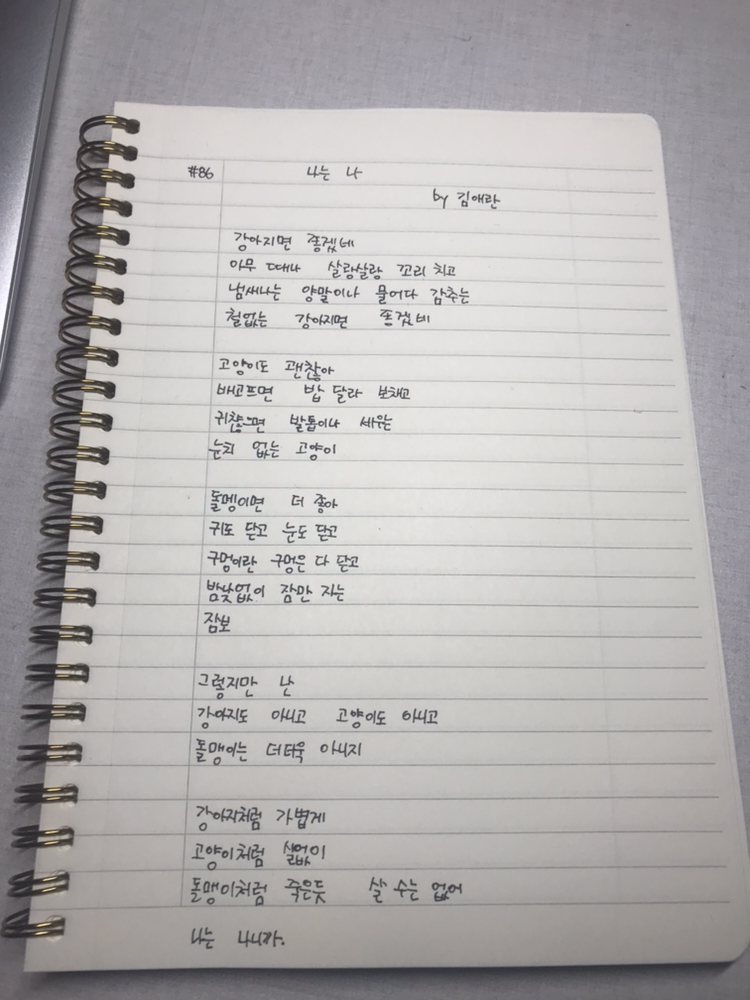 #86 나는 나
by 김애란
강아지면 좋겠네
아무 때나 살랑살랑 꼬리 치고
냄새나는 양말이나 물어다 감추는
철없는 강아지면 좋겠네
고양이도 괜찮아
배고프면 밥 달라 보채고
귀찮으면 발톱이나 세우는
눈치 없는 고양이
돌멩이면 더 좋아
귀도 닫고 눈도 닫고
구멍이란 구멍은 다 닫고
밤낮없이 잠만 자는
잠보
그렇지만 난
강아지도 아니고 고양이도 아니고
돌맹이는 더더욱 아니지
강아지처럼 가볍게
고양이처럼 실없이
돌맹이처럼 죽은듯 살 수는 없어
나는 나니까.